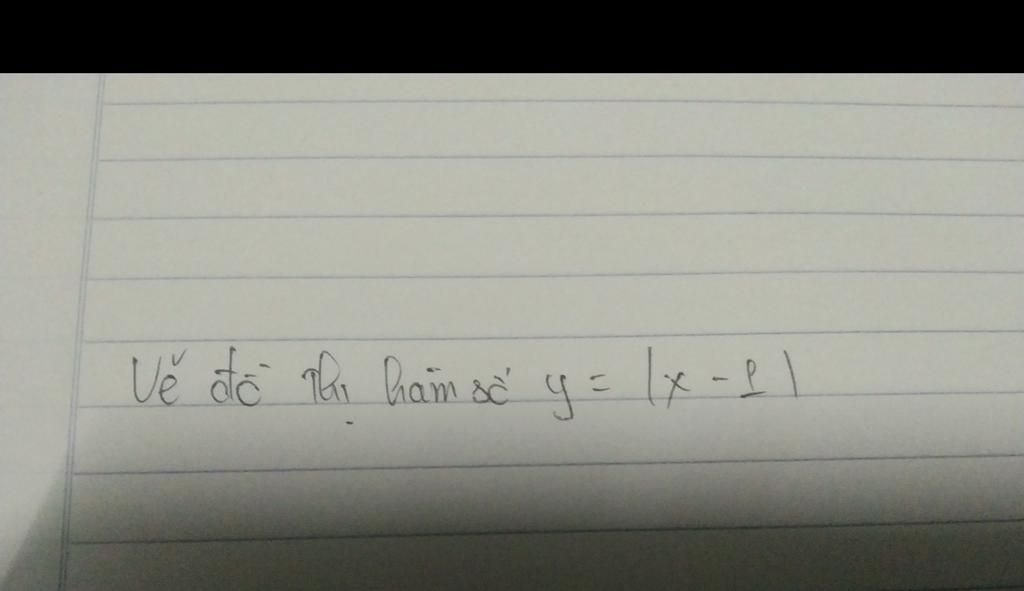 Vẽ đồ thị hàm số y = |x - 1|